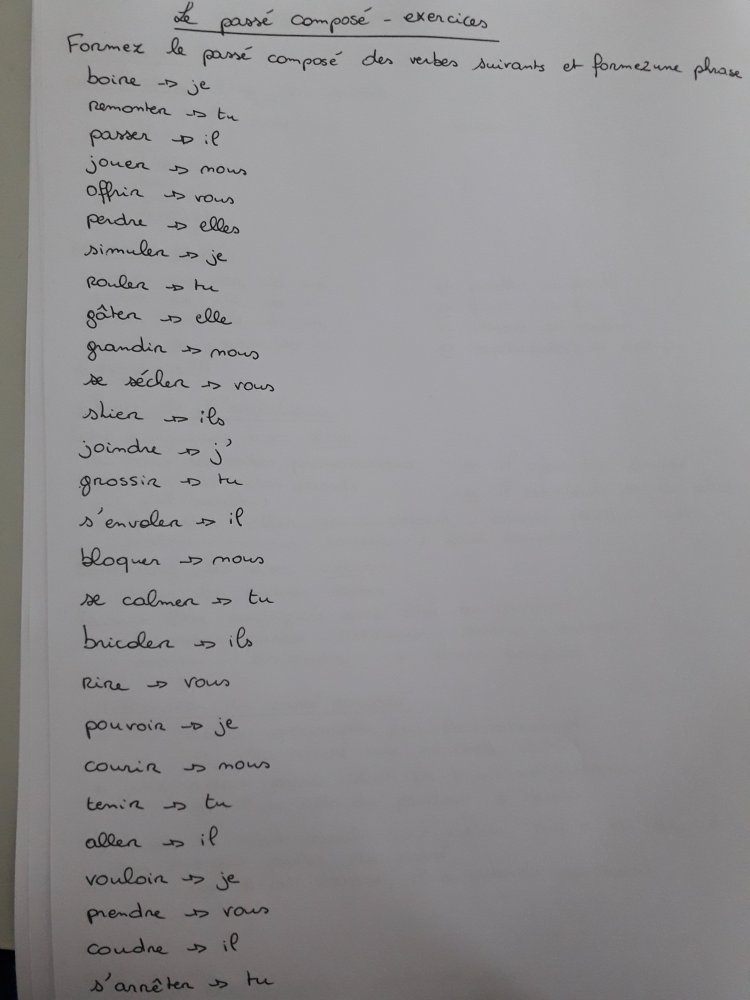 Le passé composé - exercices
Formez le passé composé des verbes suivants et formez une phrase
boire → je
remonter → tu
passer → il
jouer → nous
offrir → vous
perdre → elles
simuler → je
rouler → tu
gâter → elle
grandir → nous
se sécher → vous
skier → ils
joindre → j'
grossir → tu
s'envoler → il
bloquer → nous
se calmer → tu
bricoler → ils
rire → vous
pouvoir → je
courir → nous
tenir → tu
aller → il
vouloir → je
prendre → vous
coudre → il
s'arrêter → tu